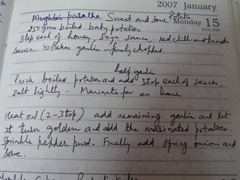 2007 January
Monday 15
Sweet and Sour Potato
250 gms boiled baby potatoes
3 tsp each of honey, soya sauce, red chilli and
sauce. 10 flakes garlic - finely chopped.
half garlic
Prick boiled potatoes and add 3 tsp each of sauces,
salt lightly. Marinate for an hour.
Heat oil (2-3 tsp) add remaining garlic and let
it turn golden and add the marinated potatoes.
Sprinkle pepper powd. Finally add spring onion and
serve.